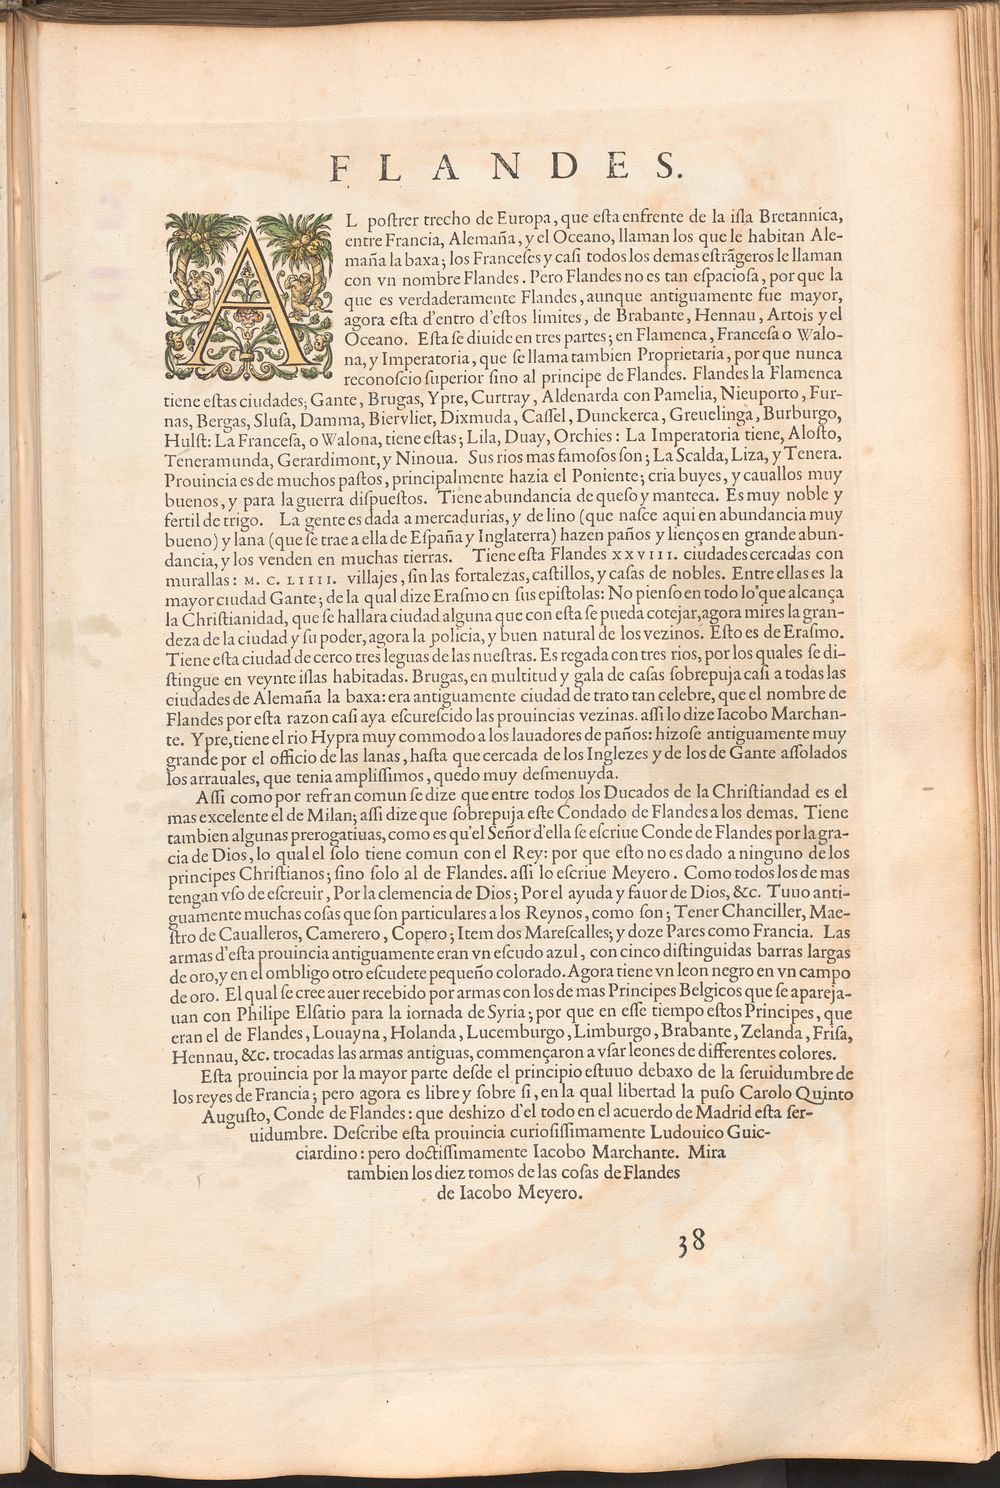 FLANDES.
AL postrer trecho de Europa, que esta enfrente de la isla Bretannica,
entre Francia, Alemaña, y el Oceano, llaman los que le habitan Ale-
maña la baxa; los Franceses y casi todos los demas estrãgeros le llaman
con vn nombre Flandes. Pero Flandes no es tan espaciosa, por que la
que es verdaderamente Flandes, aunque antiguamente fue mayor,
agora esta d'entro d'estos limites, de Brabante, Hennau, Artois y el
Oceano. Esta se diuide en tres partes; en Flamenca, Francesa o Walo-
na, y Imperatoria, que se llama tambien Proprietaria, por que nunca
reconoscio superior sino al principe de Flandes. Flandes la Flamenca
tiene estas ciudades; Gante, Brugas, Ypre, Curtray, Aldenarda con Pamelia, Nieuporto, Fur-
nas, Bergas, Slusa, Damma, Biervliet, Dixmuda, Cassel, Dunckerca, Greuelinga, Burburgo,
Hulst: La Francesa, o Walona, tiene estas; Lila, Duay, Orchies: La Imperatoria tiene, Alosto,
Teneramunda, Gerardimont, y Ninoua. Sus rios mas famosos son; La Scalda, Liza, y Tenera.
Prouincia es de muchos pastos, principalmente hazia el Poniente; cria buyes, y cauallos muy
buenos, y para la guerra dispuestos. Tiene abundancia de queso y manteca. Es muy noble y
fertil de trigo. La gente es dada a mercadurias, y de lino (que nasce aqui en abundancia muy
bueno) y lana (que se trae a ella de España y Inglaterra) hazen paños y lienços en grande abun-
dancia, y los venden en muchas tierras. Tiene esta Flandes XXVIII. ciudades cercadas con
murallas: M. C. LIIII. villajes, sin las fortalezas, castillos, y casas de nobles. Entre ellas es la
mayor ciudad Gante; de la qual dize Erasmo en sus epistolas: No pienso en todo lo que alcança
la Christianidad, que se hallara ciudad alguna que con esta se pueda cotejar, agora mires la gran-
deza de la ciudad y su poder, agora la policia, y buen natural de los vezinos. Esto es de Erasmo.
Tiene esta ciudad de cerco tres leguas de las nuestras. Es regada con tres rios, por los quales se di-
stingue en veynte islas habitadas. Brugas, en multitud y gala de casas sobrepuja casi a todas las
ciudades de Alemaña la baxa: era antiguamente ciudad de trato tan celebre, que el nombre de
Flandes por esta razon casi aya escurescido las prouincias vezinas. assi lo dize Iacobo Marchan-
te. Ypre, tiene el rio Hypra muy commodo a los lauadores de paños: hizose antiguamente muy
grande por el officio de las lanas, hasta que cercada de los Inglezes y de los de Gante assolados
los arrauales, que tenia amplissimos, quedo muy desmenuyda.
Assi como por refran comun se dize que entre todos los Ducados de la Christiandad es el
mas excelente el de Milan; assi dize que sobrepuja este Condado de Flandes a los demas. Tiene
tambien algunas prerogatiuas, como es qu'el Señor d'ella se escriue Conde de Flandes por la gra-
cia de Dios, lo qual el solo tiene comun con el Rey: por que esto no es dado a ninguno de los
principes Christianos; sino solo al de Flandes. assi lo escriue Meyero. Como todos los de mas
tengan vso de escreuir, Por la clemencia de Dios; Por el ayuda y fauor de Dios, &c. Tuuo anti-
guamente muchas cosas que son particulares a los Reynos, como son; Tener Chanciller, Mae-
stro de Caualleros, Camerero, Copero; Item dos Marescalles; y doze Pares como Francia. Las
armas d'esta prouincia antiguamente eran vn escudo azul, con cinco distinguidas barras largas
de oro, y en el ombligo otro escudete pequeño colorado. Agora tiene vn leon negro en vn campo
de oro. El qual se cree auer recebido por armas con los de mas Principes Belgicos que se apareja-
uan con Philipe Elsatio para la iornada de Syria; por que en esse tiempo estos Principes, que
eran el de Flandes, Louayna, Holanda, Lucemburgo, Limburgo, Brabante, Zelanda, Frisa,
Hennau, &c. trocadas las armas antiguas, commençaron a vsar leones de differentes colores.
Esta prouincia por la mayor parte desde el principio estuuo debaxo de la seruidumbre de
los reyes de Francia; pero agora es libre y sobre si, en la qual libertad la puso Carolo Quinto
Augusto, Conde de Flandes: que deshizo d'el todo en el acuerdo de Madrid esta ser-
uidumbre. Describe esta prouincia curiosissimamente Ludouico Guic-
ciardino: pero doctissimamente Iacobo Marchante. Mira
tambien los diez tomos de las cosas de Flandes
de Iacobo Meyero.
38